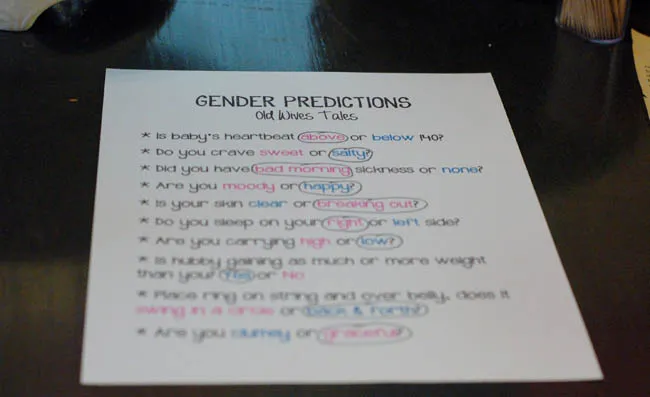 GENDER PREDICTIONS
Old Wives Tales
* Is baby's heartbeat above or below 140?
* Do you crave sweet or salty?
* Did you have bad morning sickness or none?
* Are you moody or happy?
* Is your skin clear or breaking out?
* Do you sleep on your right or left side?
* Are you carrying high or low?
* Is hubby gaining as much or more weight
than you? Yes or No
* Place ring on string and over belly, does it
swing in a circle or back & forth?
* Are you clumsy or graceful?